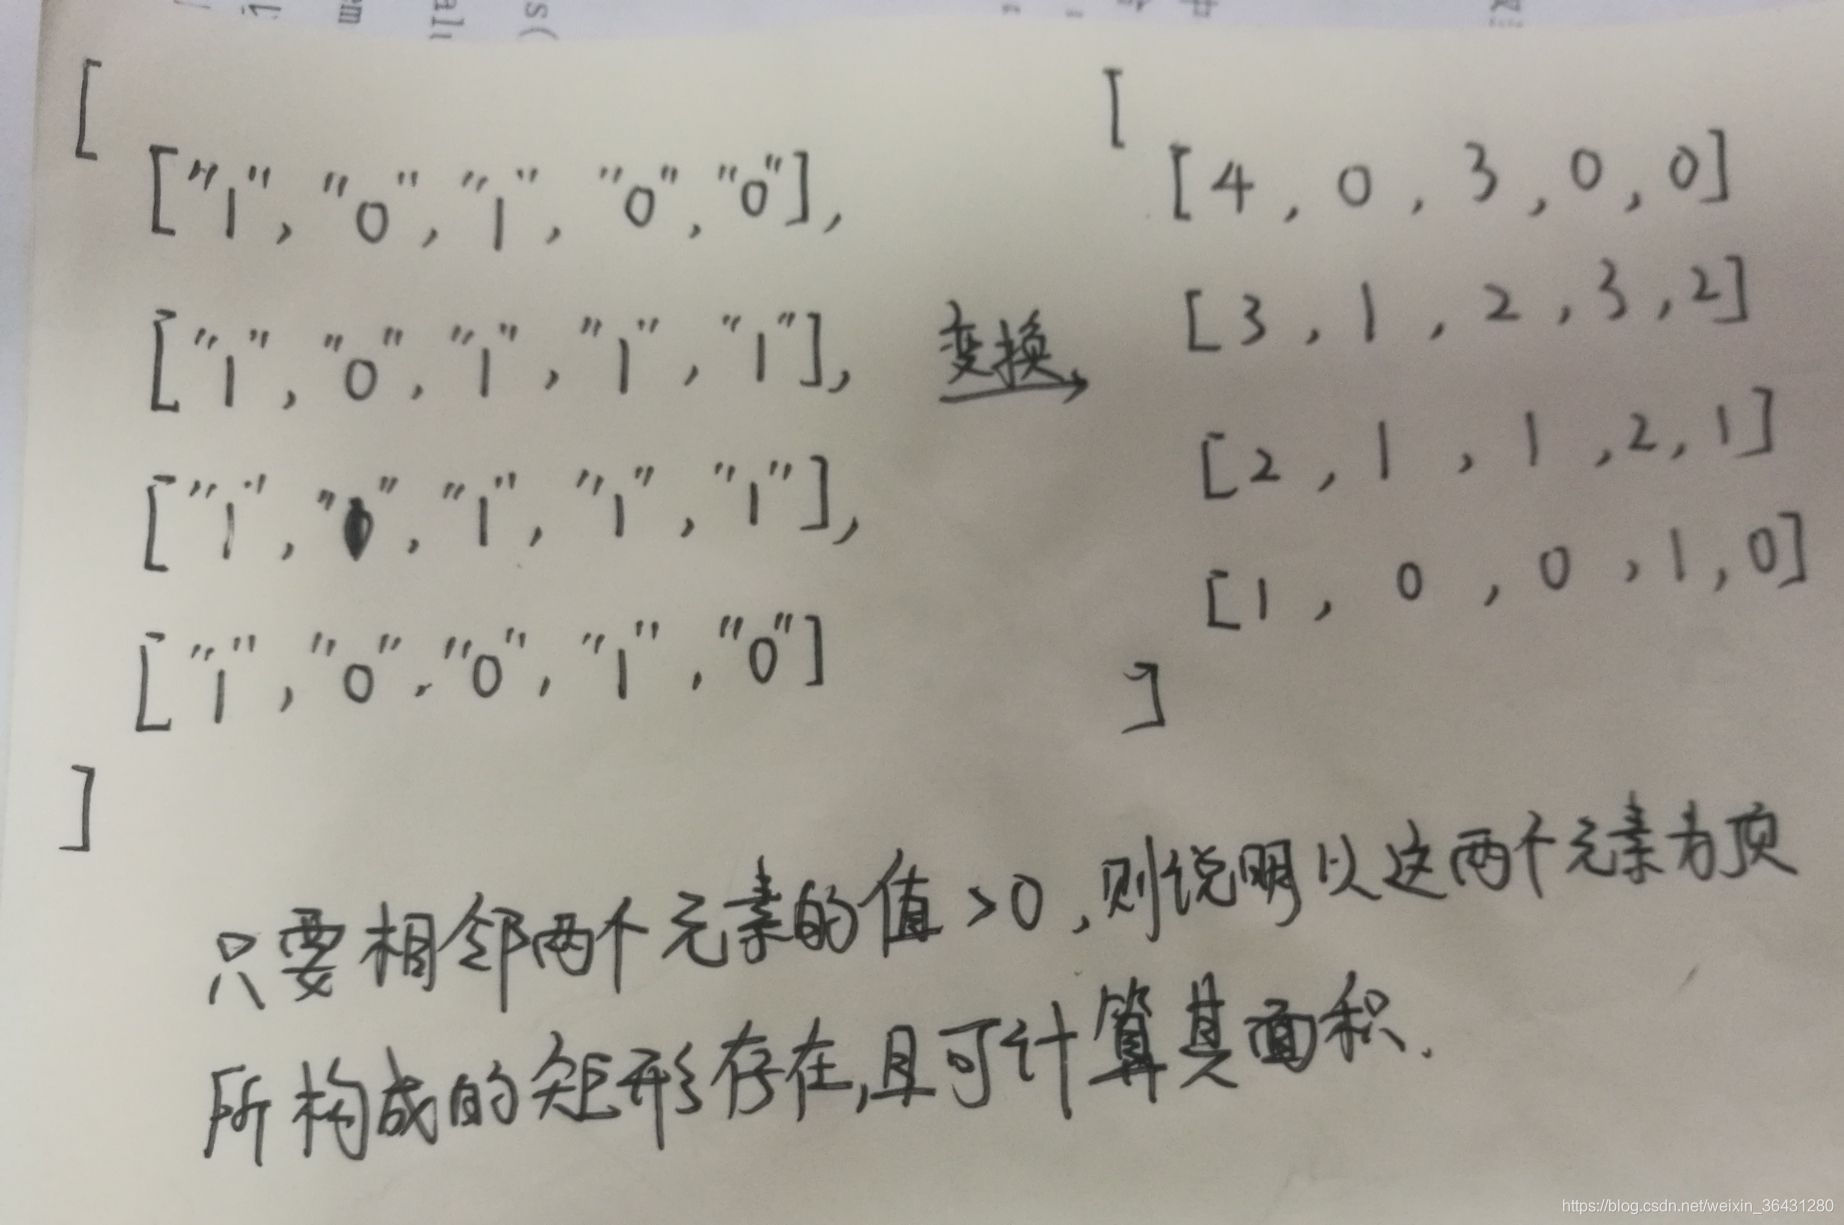 [
["1", "0", "1", "0", "0"],
["1", "0", "1", "1", "1"],
["1", "0", "1", "1", "1"],
["1", "0", "0", "1", "0"]
]
变换
[
[4, 0, 3, 0, 0]
[3, 1, 2, 3, 2]
[2, 1, 1, 2, 1]
[1, 0, 0, 1, 0]
]
只要相邻两个元素的值>0,则说明以这两个元素为顶
所构成的矩形存在,且可计算其面积.
https://blog.csdn.net/weixin_36431280